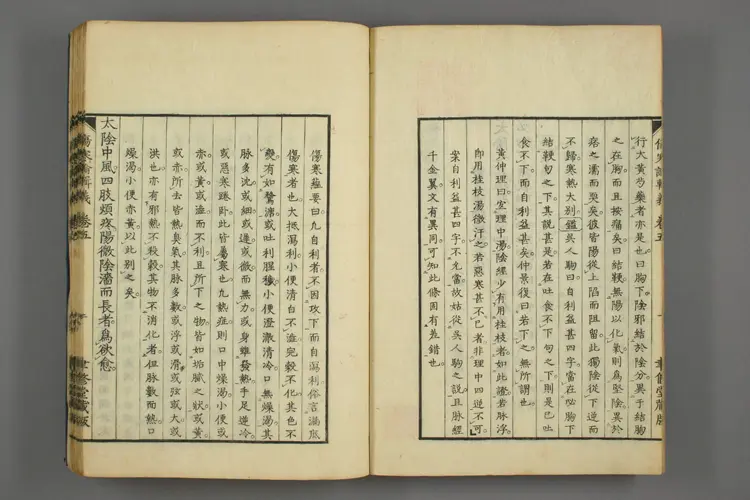 行大黃芍藥者亦是也曰胸下陰邪結於陰分異乎結胸
之在胸而且按痛矣曰結鞕無陽以化氣則爲堅陰異於
痞之濡而耎矣彼皆陽從上陷而阻留此獨陰從下逆而
不歸寒熱大別鑑吳人駒曰自利益甚四字當在必胸下
結鞕句之下其說甚是若在吐食不下句之下則是已吐
食不下而自利益甚矣仲景復曰若下之無所謂也
黃仲理曰宜理中湯陰經少有用桂枝者如此證若脉浮
即用桂枝湯微汗之若惡寒甚不已者非理中四逆不可
案自利益甚四字不允當故姑從吳人駒之說且脉經
千金翼文有異同可知此條固有差錯也
傷寒蘊要曰凡自利者不因攻下而自瀉利俗言漏底
傷寒者也大抵瀉利小便清白不澁完穀不化其色不
變有如鶩溏或吐利腥穢小便澄澈清冷口無燥渴其
脉多沈或細或遲或微而無力或身雖發熱手足逆冷
或惡寒踡臥此皆屬寒也凡熱症則口中燥渴小便或
赤或黃或澁而不利且所下之物皆如垢膩之狀或黃
或赤所去皆熱臭氣其脉多數或浮或滑或弦或大或
洪也亦有邪熱不殺穀其物不消化者但脉數而熱口
燥渴小便赤黃以此別之矣
太陰中風四肢煩疼陽微陰濇而長者爲欲愈
傷寒論輯義 卷五
聿修堂藏版